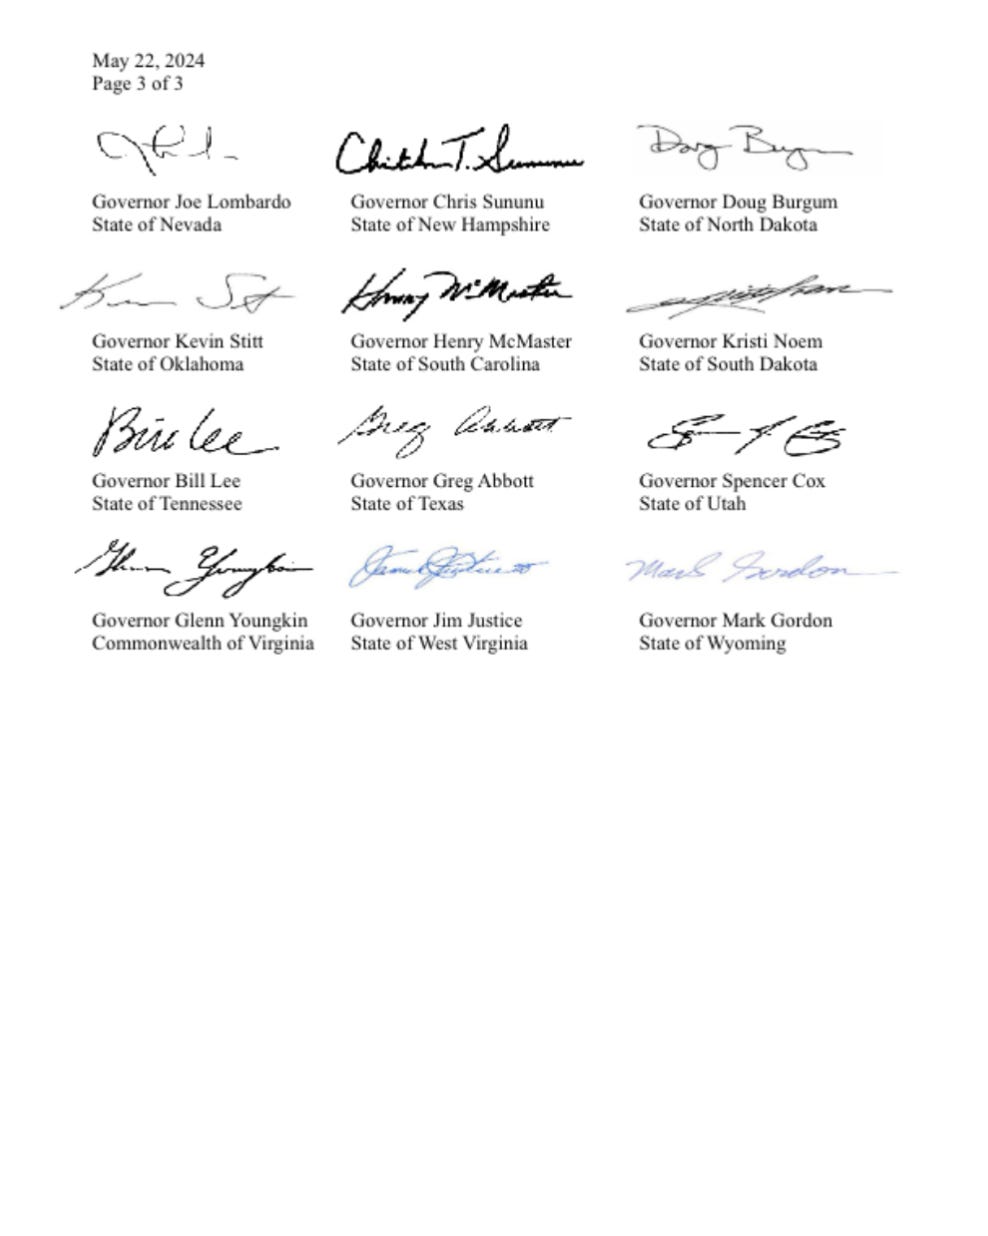 May 22, 2024
Page 3 of 3
Christopher T. Sununu
Doug Burgum
Governor Joe Lombardo
Governor Chris Sununu
Governor Doug Burgum
State of Nevada
State of New Hampshire
State of North Dakota
Henry McMaster
Governor Kevin Stitt
Governor Henry McMaster
Governor Kristi Noem
State of Oklahoma
State of South Carolina
State of South Dakota
Bill Lee
Greg Abbott
Governor Bill Lee
Governor Greg Abbott
Governor Spencer Cox
State of Tennessee
State of Texas
State of Utah
Glenn Youngkin
Mark Gordon
Governor Glenn Youngkin
Governor Jim Justice
Governor Mark Gordon
Commonwealth of Virginia
State of West Virginia
State of Wyoming